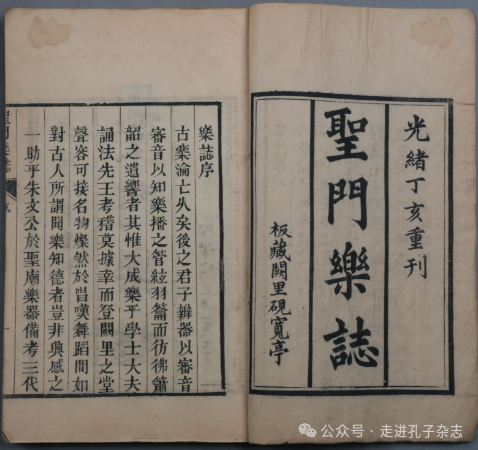 光緒丁亥重刊
聖門樂誌
板藏闕里硯寬亭
樂誌序
古樂淪亡久矣後之君子辨器以審音
審音以知樂播之管絃羽籥而彷彿簫
韶之遺響者其惟大成樂乎學士大夫
誦法先王考稽莫據幸而登闕里之堂
聲容可接名物燦然於喟嘆舞蹈間如
對古人所謂聞樂知德者豈非興感之
一助乎朱文公於聖廟樂器備考三代
公众号·走进孔子杂志